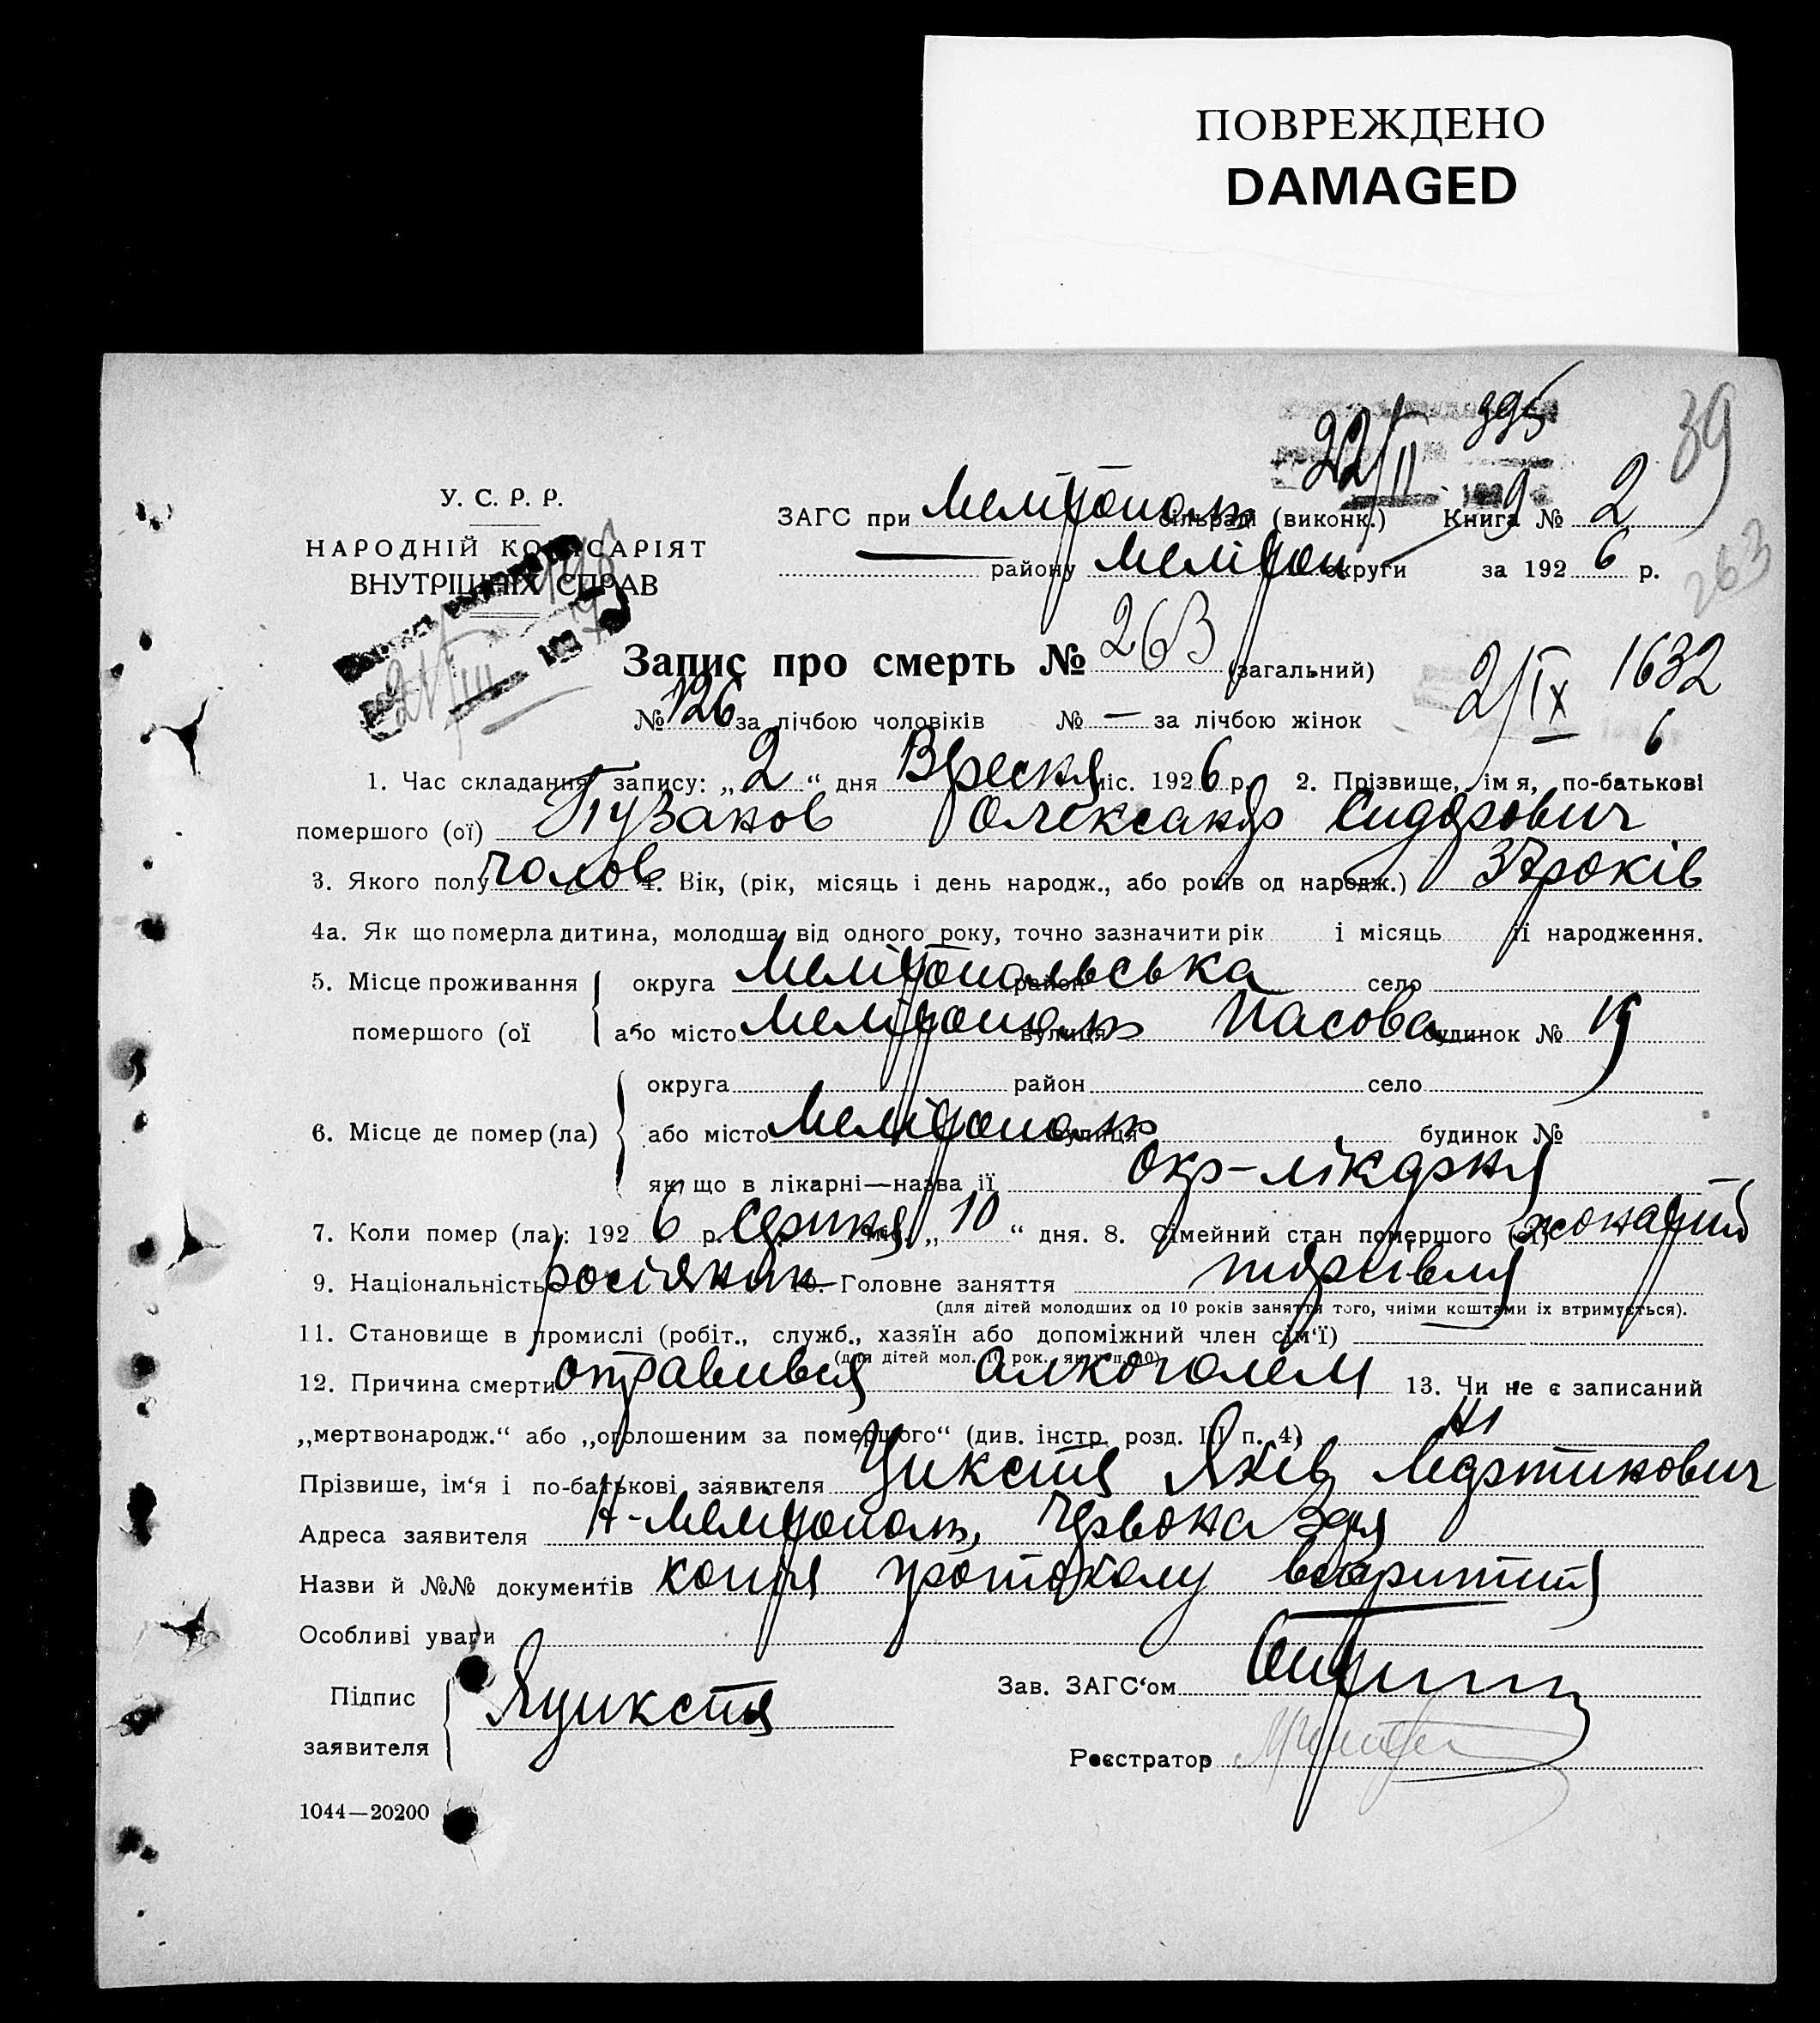 ПОВРЕЖДЕНО
DAMAGED
395
39
22/II
У. С. Р. Р.
НАРОДНІЙ КОМІСАРІЯТ
ВНУТРІШНІХ СПРАВ
ЗАГС при Мелітополь сільради (виконк.) Книга № 2
району Меліпол округи за 1926 р.
263
Запис про смерть № 263 (загальний)
2/IX 1632
6
№ 126 за лічбою чоловіків № — за лічбою жінок
1. Час складання запису: „ 2 “ дня Вресня міс. 1926 р. 2. Прізвище, ім я, по-батькові
помершого (ої) Пузанов Олександр Сидорович
3. Якого полу чолов 4. Вік, (рік, місяць і день народж., або років од народж.) 37 років
4а. Як що померла дитина, молодша від одного року, точно зазначити рік і місяць її народження.
5. Місце проживання округа Мелітопольська район село
помершого (ої або місто Мелітополь вулиця будинок № 19
округа район село
6. Місце де помер (ла) або місто Мелітополь вулиця будинок №
як що в лікарні—назва її Окр-лікарня
7. Коли помер (ла): 1926 р. Серпня міс. „ 10 “ дня. 8. Сімейний стан помершого (ої) жонатий
9. Національність росіянин 10. Головне заняття торгівля
(для дітей молодших од 10 років заняття того, чиїми коштами їх втримується).
11. Становище в промислі (робіт., служб., хазяїн або допоміжний член сім‘ї)
(для дітей мол. 10 рок. як у п. 10)
12. Причина смерти отравився алкоголем 13. Чи не є записаний
„мертвонародж.“ або „оголошеним за помершого“ (див. інстр. розд. III п. 4) Ні
Прізвише, ім‘я і по-батькові заявителя Яків Мартинович
Адреса заявителя Н-Мелітополь, Червона
Назви й №№ документів копія протоколу
Особливі уваги
Підпис
заявителя
Зав. ЗАГС‘ом
Реєстратор
1044—20200